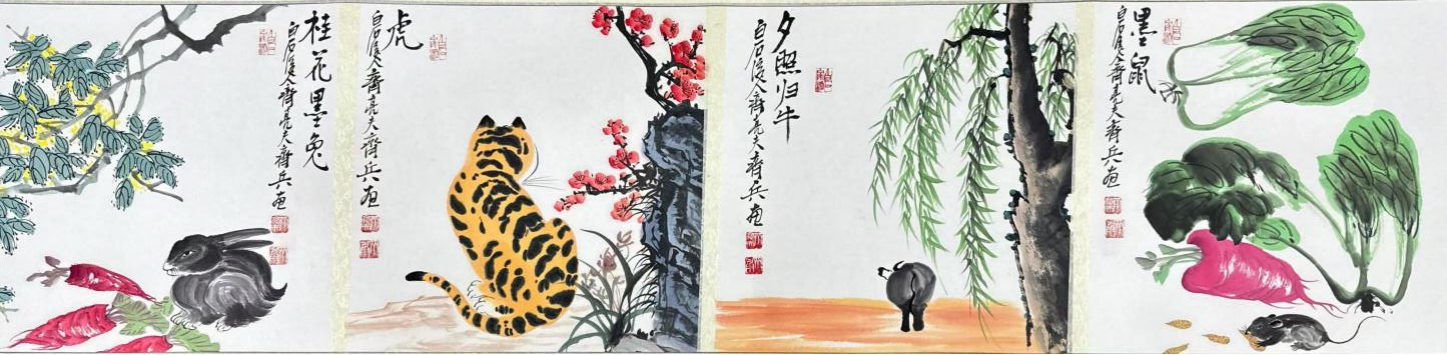 桂花墨兔
白石后人齐亮夫齊兵画
虎
白石后人齊亮夫齊兵画
夕照归牛
白石后人齊亮夫齊兵画
墨鼠
白石后人齊亮夫齊兵画